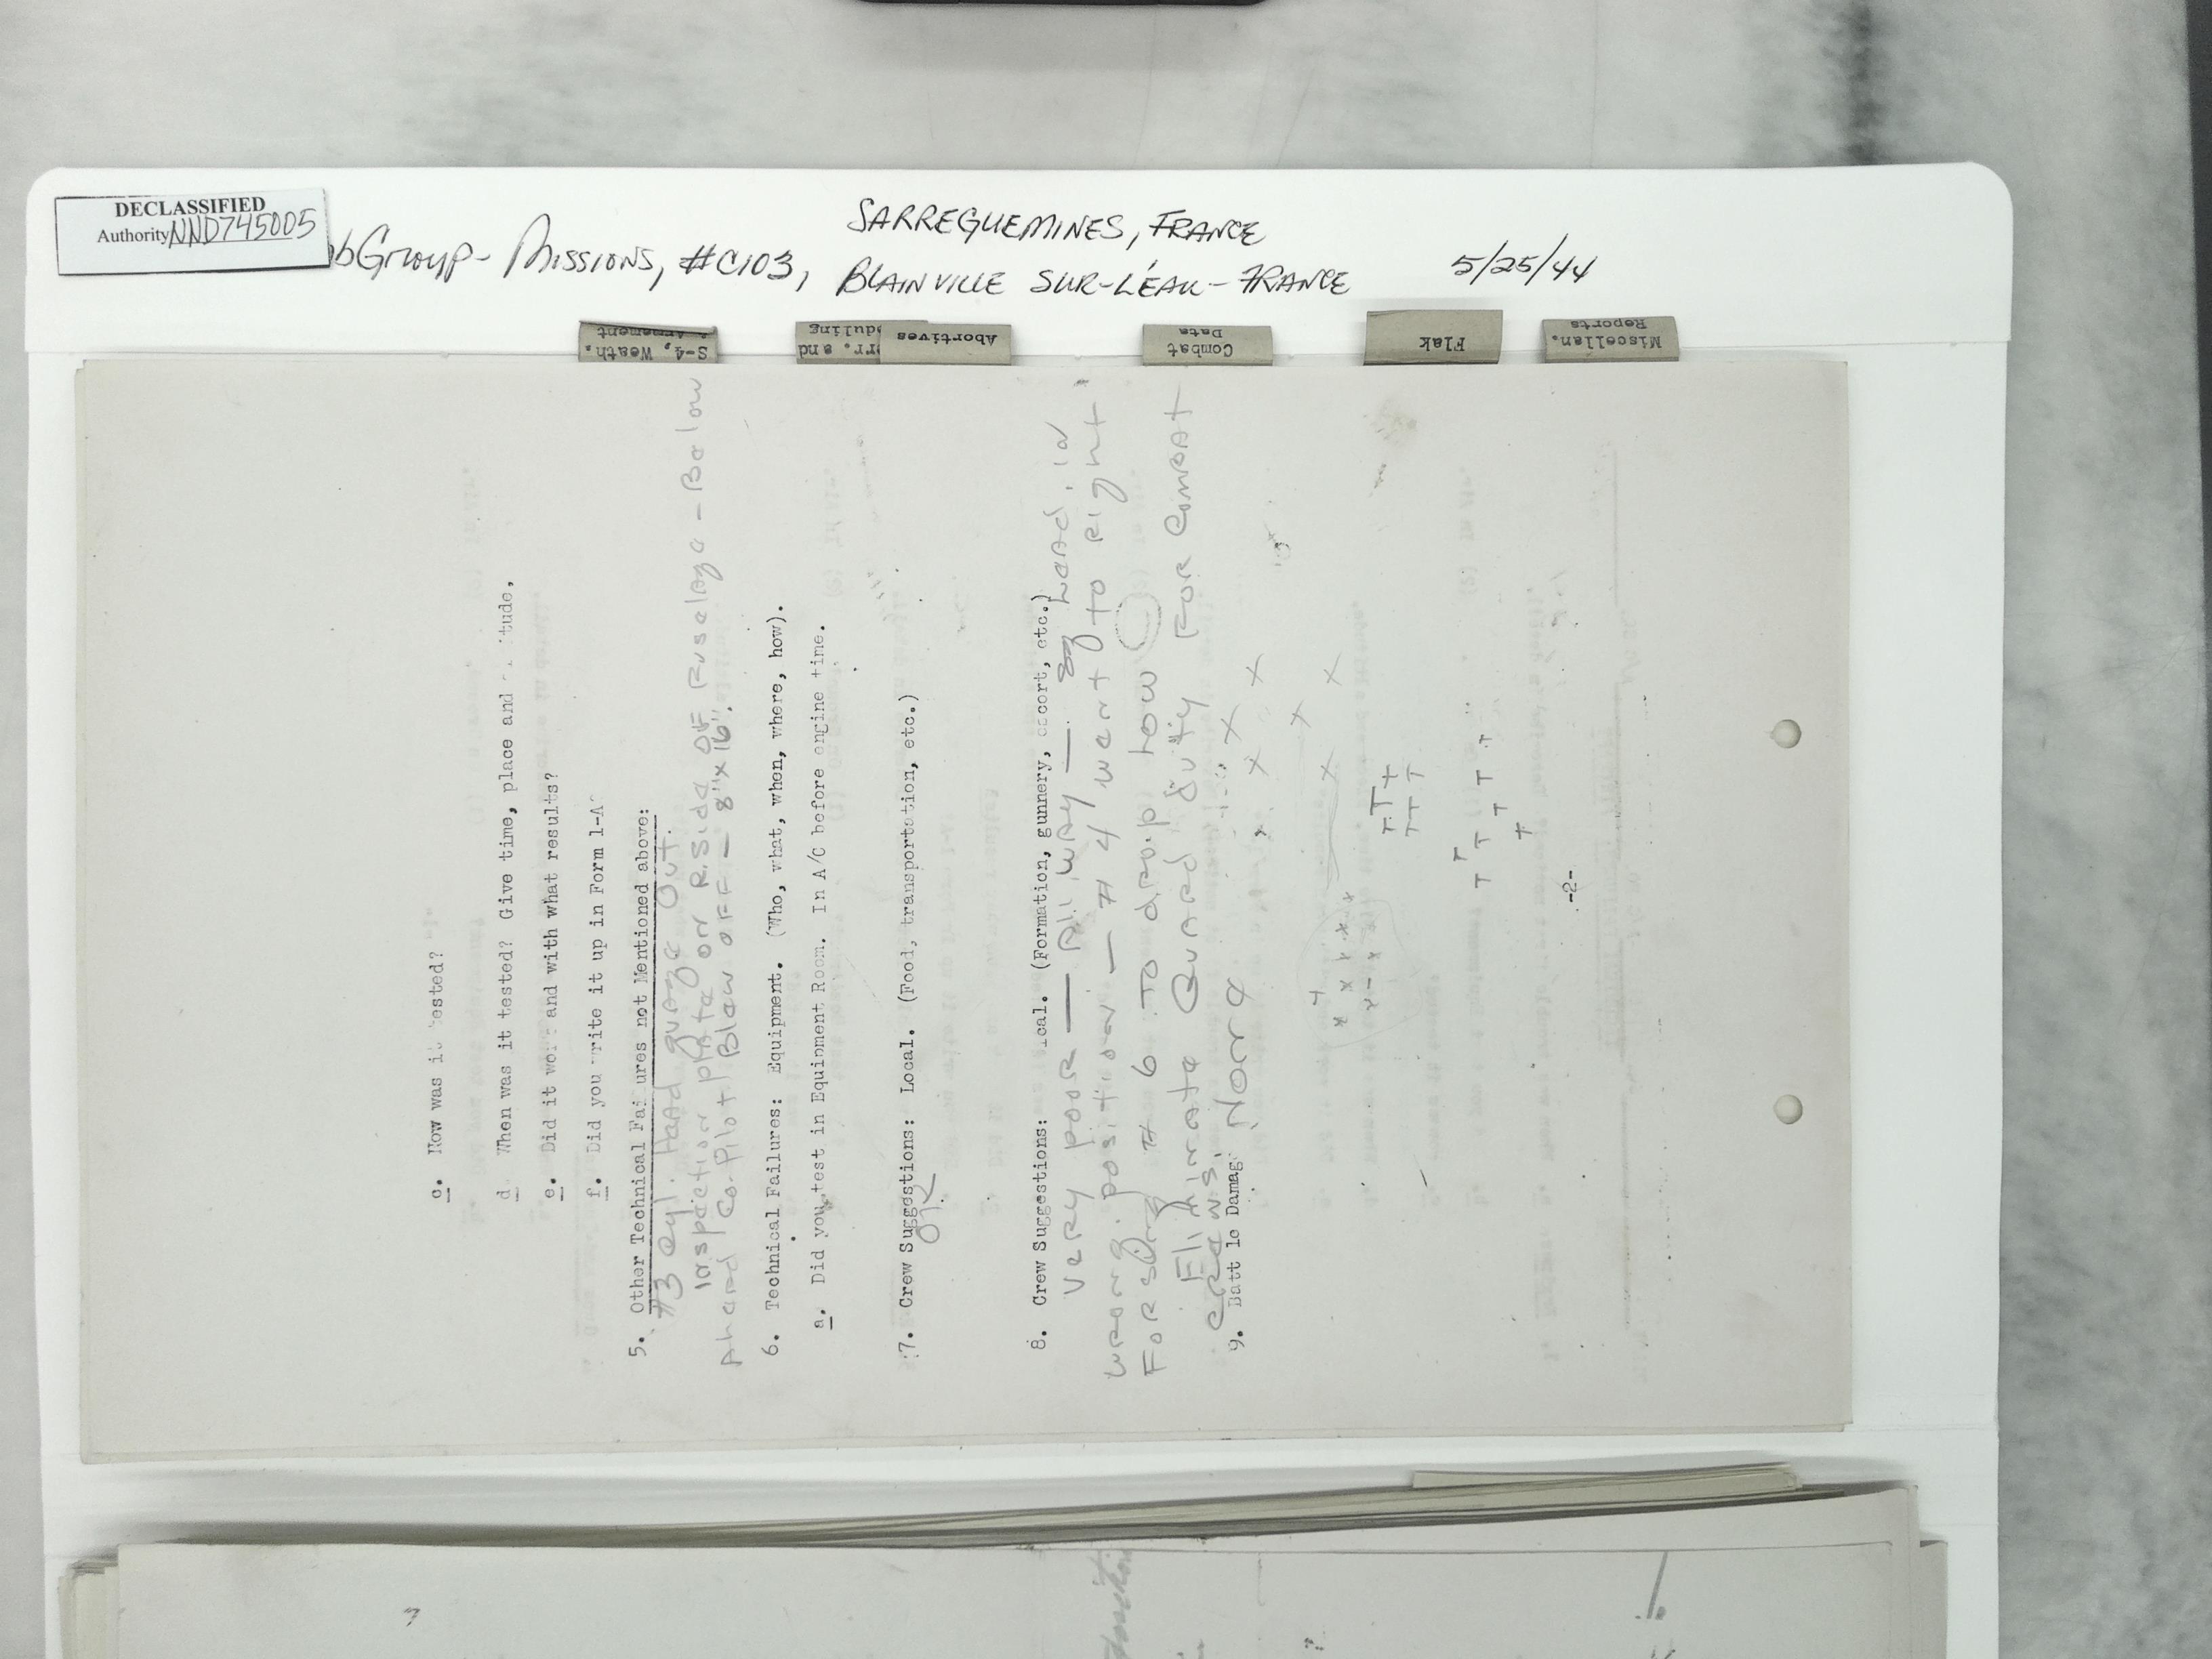 DECLASSIFIED
Authority NND745005
bGroup - Missions, #C103,
SARREGUEMINES, FRANCE
BLAINVILLE SUR-L'EAU - FRANCE
5/25/44
S-4, Weath.
Armement
rr. and
duling
Abortives
Combat
Data
Flak
Miscellan.
Reports
c. How was it tested?
d When was it tested? Give time, place and tude,
e. Did it wor and with what results?
f. Did you write it up in Form 1-A
5. Other Technical Fai ures not Mentioned above:
#3 cyl. Head guage out.
Inspection plate on R. Side of Fuselage - Below
Ahead Co-Pilot Blew off - 8" x 16".
6. Technical Failures: Equipment. (Who, what, when, where, how).
a. Did you test in Equipment Room. In A/C before engine time.
7. Crew Suggestions: Local. (Food, transportation, etc.)
OK
8. Crew Suggestions: ical. (Formation, gunnery, escort, etc.)
Very poor — All way — Lead in
wrong position — #4 went to Right
Forcing #6 to drop low
Eliminate Guard duty For Combat
Crews.
9. Batt le Damag None
-2-